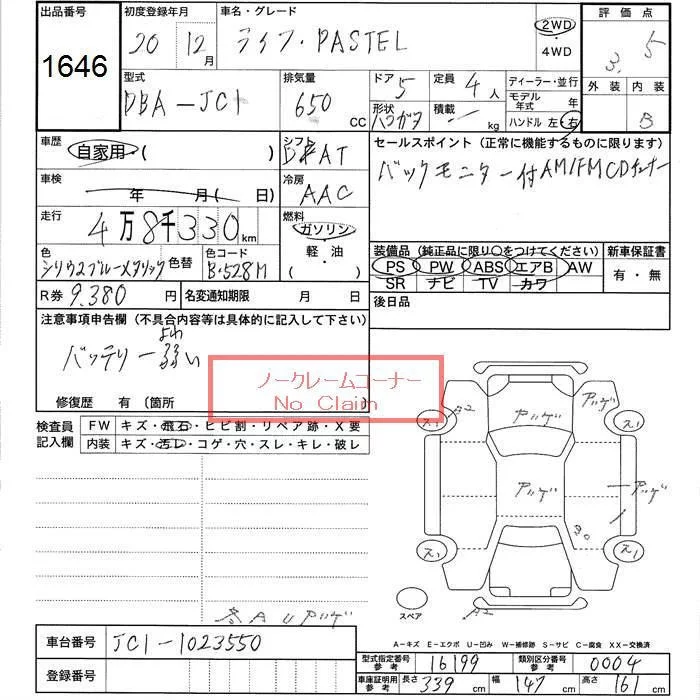 出品番号
1646
初度登録年月
20 12月
車名・グレード
ライフ・PASTEL
2WD
・
4WD
評価点
3.5
外装 内装
B
型式
DBA-JC1
排気量
650 cc
ドア 5
定員 4人
形状
積載 kg
ディーラー・並行
モデル年式 年
ハンドル 左・右
車歴
自家用・( )
シフト
AT
セールスポイント (正常に機能するものに限ります)
バックモニター付 AM/FM CD
車検
年 月( 日)
冷房
AAC
走行
4万8千330km
燃料
ガソリン
・
軽・油
・( )
色
シリウスブルーメタリック
色替
色コード
B・528M
装備品 (純正品に限り○をつけてください)
PS PW ABS エアB AW
SR ナビ TV カワ
新車保証書
有・無
R券 9.380円
名変通知期限 月 日
後日品
注意事項申告欄 (不具合内容等は具体的に記入して下さい)
よわ
バッテリー弱い
ノークレームコーナー
No Claim
修復歴 有 〔箇所
検査員記入欄
FW キズ・飛石・ヒビ割・リペア跡・X要
内装 キズ・汚レ・コゲ・穴・スレ・キレ・破レ
A2
アッゲ
アッゲ
ス1
ス1
アッゲ
アッゲ
ス1
ス1
A2
スペア
AU アッゲ
A-キズ E-エクボ U-凹み W-補修跡 S-サビ C-腐食 XX-交換済
車台番号 JC1-1023550
登録番号
型式指定番号参考 16199
類別区分番号参考 0004
車庫証明用参考 長さ 339cm 幅 147cm 高さ 161cm